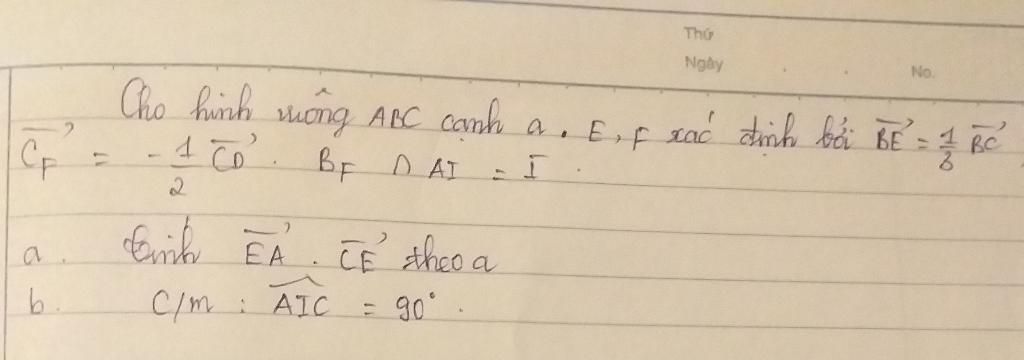 Thứ
Ngày . . No.
Cho hình vuông ABC cạnh a. E, F xác định bởi \overrightarrow{BE} = \frac{1}{3} \overrightarrow{BC},
\overrightarrow{CF} = -\frac{1}{2} \overrightarrow{CD}. BF ∩ AI = I.
a. tính \overrightarrow{EA} . \overrightarrow{CE} theo a
b. C/m : \widehat{AIC} = 90°.